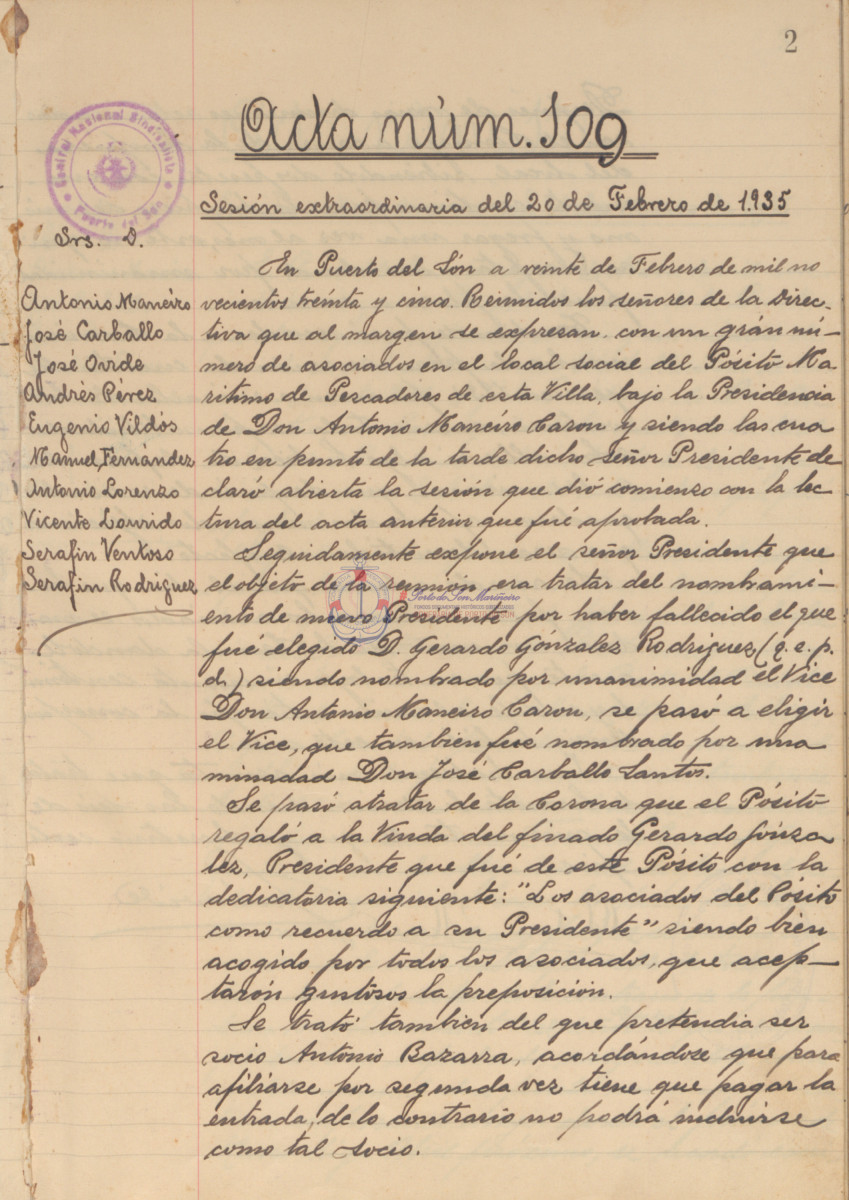 2
Acta núm. 109
Central Nacional Sindicalista
Puerto del Son
Sesión extraordinaria del 20 de Febrero de 1.935
Srs. D.
Antonio Maneiro
José Carballo
José Ovide
Andrés Pérez
Eugenio Vildós
Manuel Fernández
Antonio Lorenzo
Vicente Lourido
Serafin Ventoso
Serafin Rodriguez
En Puerto del Són a veinte de Febrero de mil no
vecientos treinta y cinco. Reunidos los señores de la Direc-
tiva que al margen se expresan con un grán nú-
mero de asociados en el local social del Pósito Ma
ritimo de Pescadores de esta Villa, bajo la Presidencia
de Don Antonio Maneiro Carou y siendo las cua
tro en punto de la tarde dicho señor Presidente de
claró abierta la sesión que dió comienzo con la lec
tura del acta anterior que fué aprobada.
Seguidamente expone el señor Presidente que
el objeto de la reunión era tratar del nombrami-
ento de nuevo Presidente por haber fallecido el que
fué elegido D. Gerardo Gónzalez Rodriguez (q. e. p.
d.) siendo nombrado por unanimidad el Vice
Don Antonio Maneiro Carou, se pasó a eligir
el Vice, que tambien fué nombrado por una
minadad Don José Carballo Santos.
Se pasó atratar de la Corona que el Pósito
regaló a la Viuda del finado Gerardo Gónza
lez, Presidente que fué de este Pósito con la
dedicatoria siguiente: "Los asociados del Pósito
como recuerdo a su Presidente" siendo bien
acogido por todos los asociados, que acep-
tarón gustosos la preposición.
Se trató tambien del que pretendia ser
socio Antonio Bazarra, acordándose que para
afiliarse por segunda vez tiene que pagar la
entrada, de lo contrario no podrá incluirse
como tal socio.
Porto do Son Mariñeiro